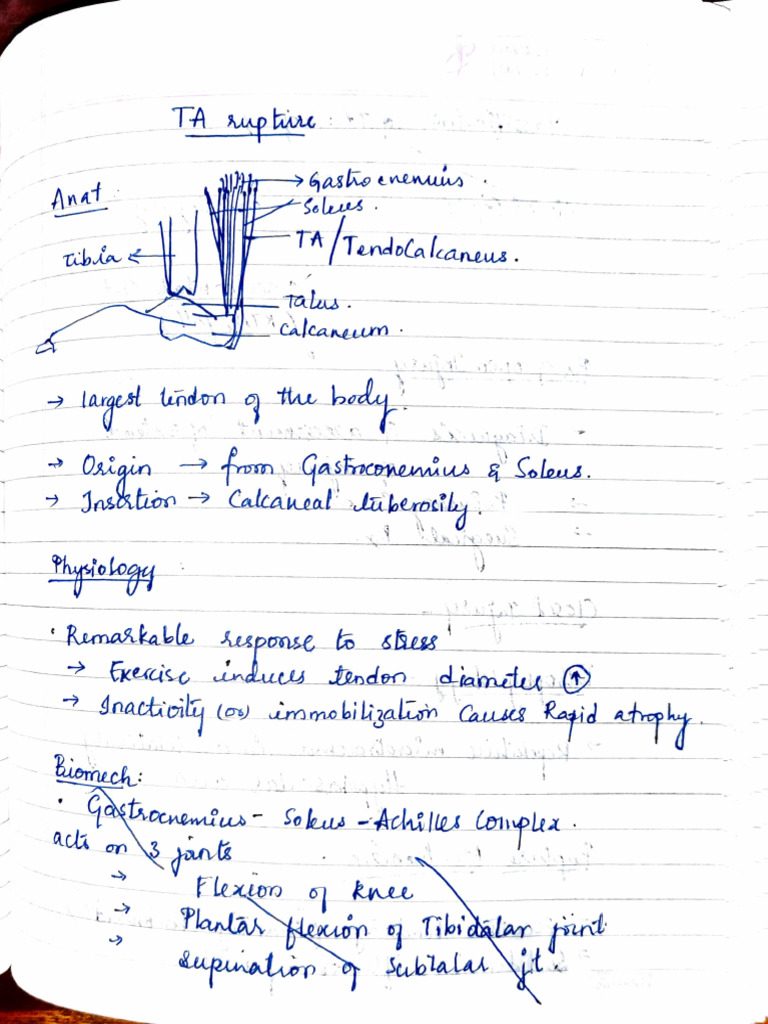 TA rupture :
Anat :
Gastrocnemius .
Soleus .
TA / TendoCalcaneus .
Tibia
Talus .
Calcaneum .
→ largest tendon of the body .
→ Origin → from Gastroconemius & Soleus .
→ Insertion → Calcaneal tuberosity .
Physiology :
· Remarkable response to stress
→ Exercise induces tendon diameter ↑
→ Inactivity (or) immobilization causes Rapid atrophy .
Biomech :
· Gastrocnemius - Soleus - Achilles complex .
acts on 3 joints
→ Flexion of knee
→ Plantar flexion of Tibidalar joint
→ supination of subtalar jt .